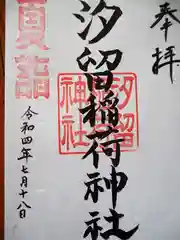 奉拝
汐留稲荷神社
汐留
神社
眞詣
令和四年七月十八日